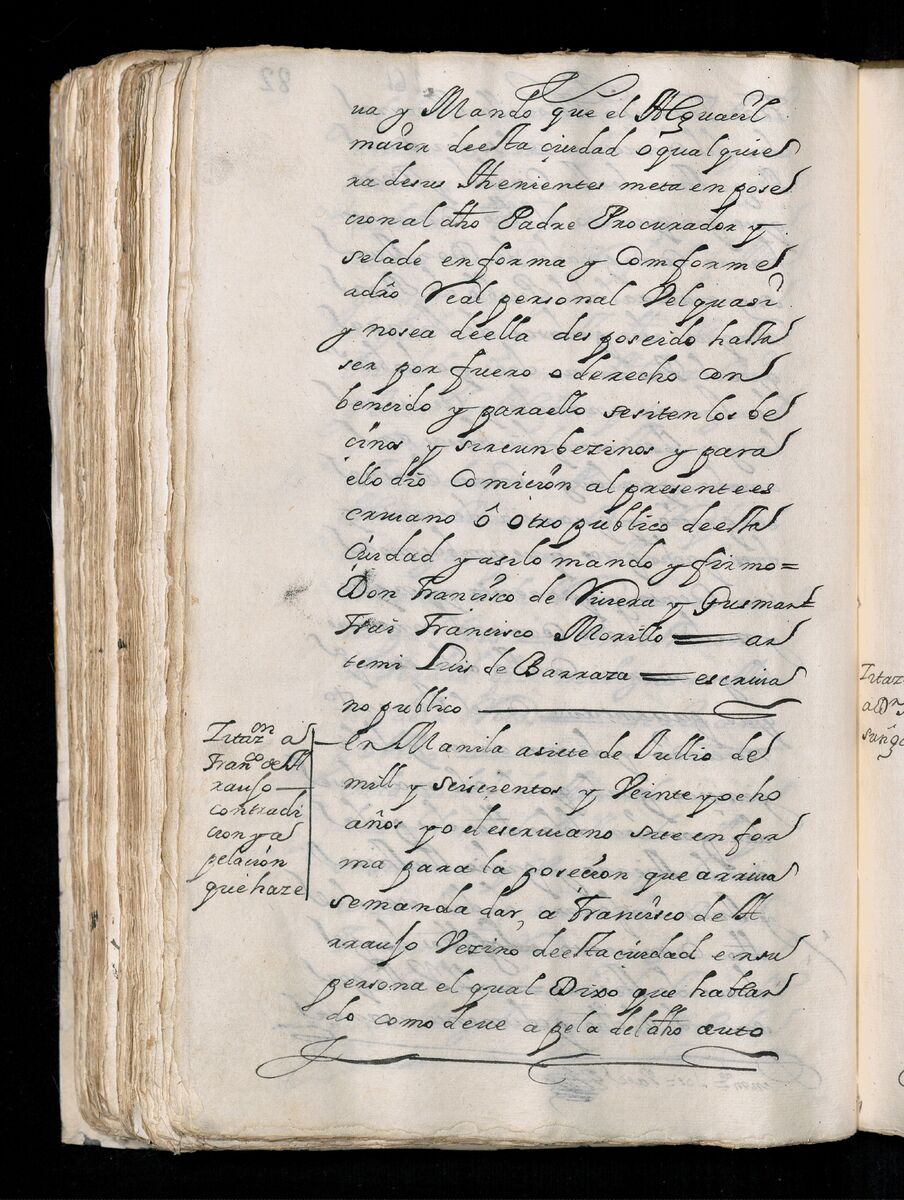 ua y Mando que el Alguacil
maior de esta ciudad o qualquie
ra de sus thenientes meta en pose
cion al dho Padre Procurador y
se la de en forma y Comforme
a dro Real personal Vel quasi
y no sea de ella desposeido hasta
ser por fuero o derecho con
bencido y para ello se siten los be
cinos y sircunbezinos y para
ello dio Comicion al presente es
criuano ô otro publico de esta
Ciudad y asi lo mando y firmo =
Don Francisco de Viueda y Gusman =
Frai Francisco Morillo = an
temi Luis de Barraza = escriua
no publico
Zitazon a
Franco de A
raujo
contradi
cion y a
pelacion
que haze
en Manila a siete de Jullio de
mill y seiscientos y Veinte y ocho
años yo el escriuano site en for
ma para la posecion que arriua
se manda dar, a Francisco de A
raujo Vezino de esta ciudad en su
persona el qual Dixo que hablan
do como deue apela del dho auto
Zitaz
a Dn